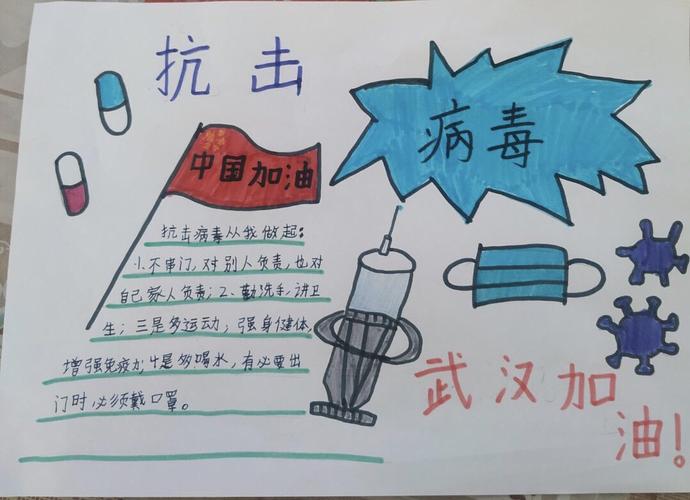 抗击
病毒
中国加油
抗击病毒从我做起:
1、不串门,对别人负责,也对
自己家人负责;2、勤洗手,讲卫
生;三是多运动,强身健体,
增强免疫力,4是多喝水,有必要出
门时必须戴口罩。
武汉加
油!